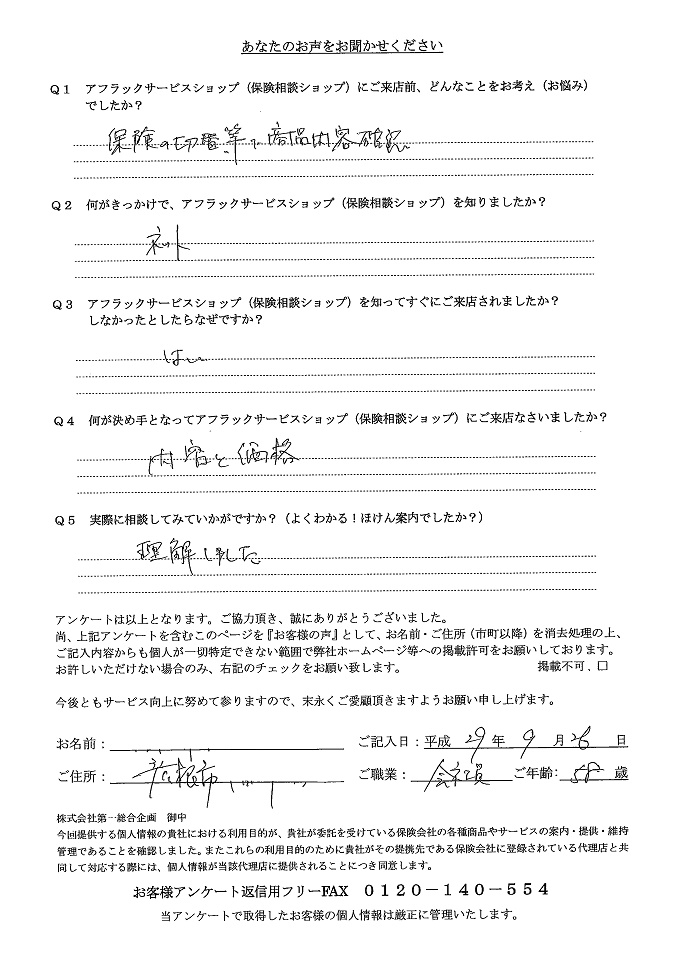 あなたのお声をお聞かせください
Q1 アフラックサービスショップ(保険相談ショップ)にご来店前、どんなことをお考え(お悩み)
でしたか?
保険の切替等で商品内容確認
Q2 何がきっかけで、アフラックサービスショップ(保険相談ショップ)を知りましたか?
ネット
Q3 アフラックサービスショップ(保険相談ショップ)を知ってすぐにご来店されましたか?
しなかったとしたらなぜですか?
はい
Q4 何が決め手となってアフラックサービスショップ(保険相談ショップ)にご来店なさいましたか?
内容と価格
Q5 実際に相談してみていかがですか?(よくわかる!ほけん案内でしたか?)
理解しました
アンケートは以上となります。ご協力頂き、誠にありがとうございました。
尚、上記アンケートを含むこのページを『お客様の声』として、お名前・ご住所(市町以降)を消去処理の上、
ご記入内容からも個人が一切特定できない範囲で弊社ホームページ等への掲載許可をお願いしております。
お許しいただけない場合のみ、右記のチェックをお願い致します。 掲載不可.□
今後ともサービス向上に努めて参りますので、末永くご愛顧頂きますようお願い申し上げます。
お名前: ご記入日:平成 29 年 9 月 26 日
ご住所: 彦根市 ご職業: 会社員 ご年齢: 58 歳
株式会社第一総合企画 御中
今回提供する個人情報の貴社における利用目的が、貴社が委託を受けている保険会社の各種商品やサービスの案内・提供・維持
管理であることを確認しました。またこれらの利用目的のために貴社がその提携先である保険会社に登録されている代理店と共
同して対応する際には、個人情報が当該代理店に提供されることにつき同意します。
お客様アンケート返信用フリーFAX 0120-140-554
当アンケートで取得したお客様の個人情報は厳正に管理いたします。